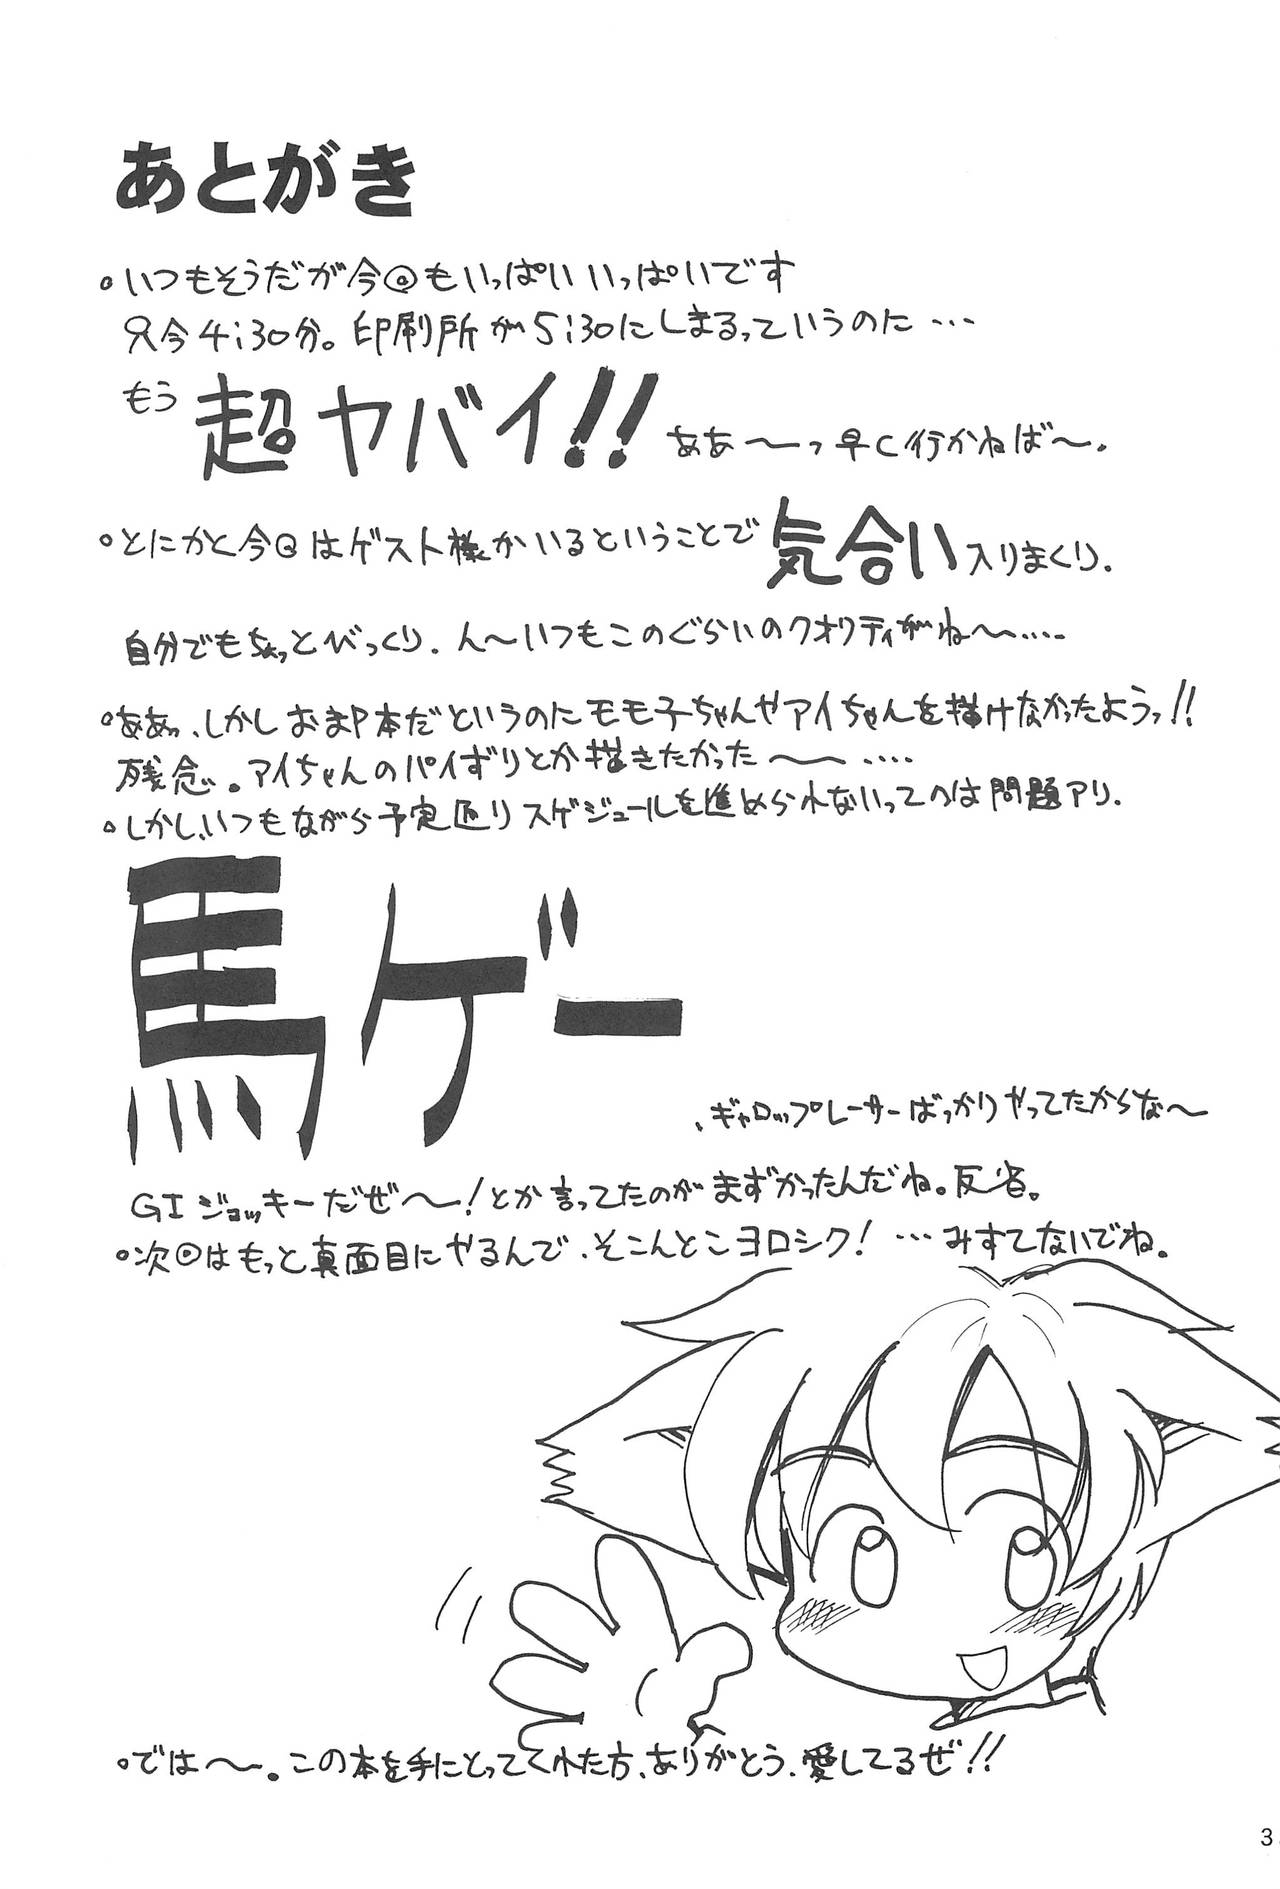 あとがき
。いつもそうだが今回もいっぱいいっぱいです
只今4:30分。印刷所が5:30にしまるっていうのに…
もう 超ヤバイ!! ああ〜っ早く行かねば〜。
。とにかく今回はゲスト様がいるということで 気合い 入りまくり.
自分でもちょっとびっくり. ん〜いつもこのぐらいのクオリティがね〜……
。ああっ、しかしおまP本だというのにモモ子ちゃんやアイちゃんを描けなかったようっ!!
残念。アイちゃんのパイずりとか描きたかった〜……
。しかし、いつもながら予定通りスケジュールを進められないってのは問題アリ.
馬ゲー
、ギャロップレーサーばっかりやってたからな〜
GIジョッキーだぜ〜!とか言ってたのがまずかったんだね。反省。
。次回はもっと真面目にやるんで、そこんとこヨロシク! …みすてないでね。
。では〜。この本を手にとってくれた方、ありがとう、愛してるぜ!!